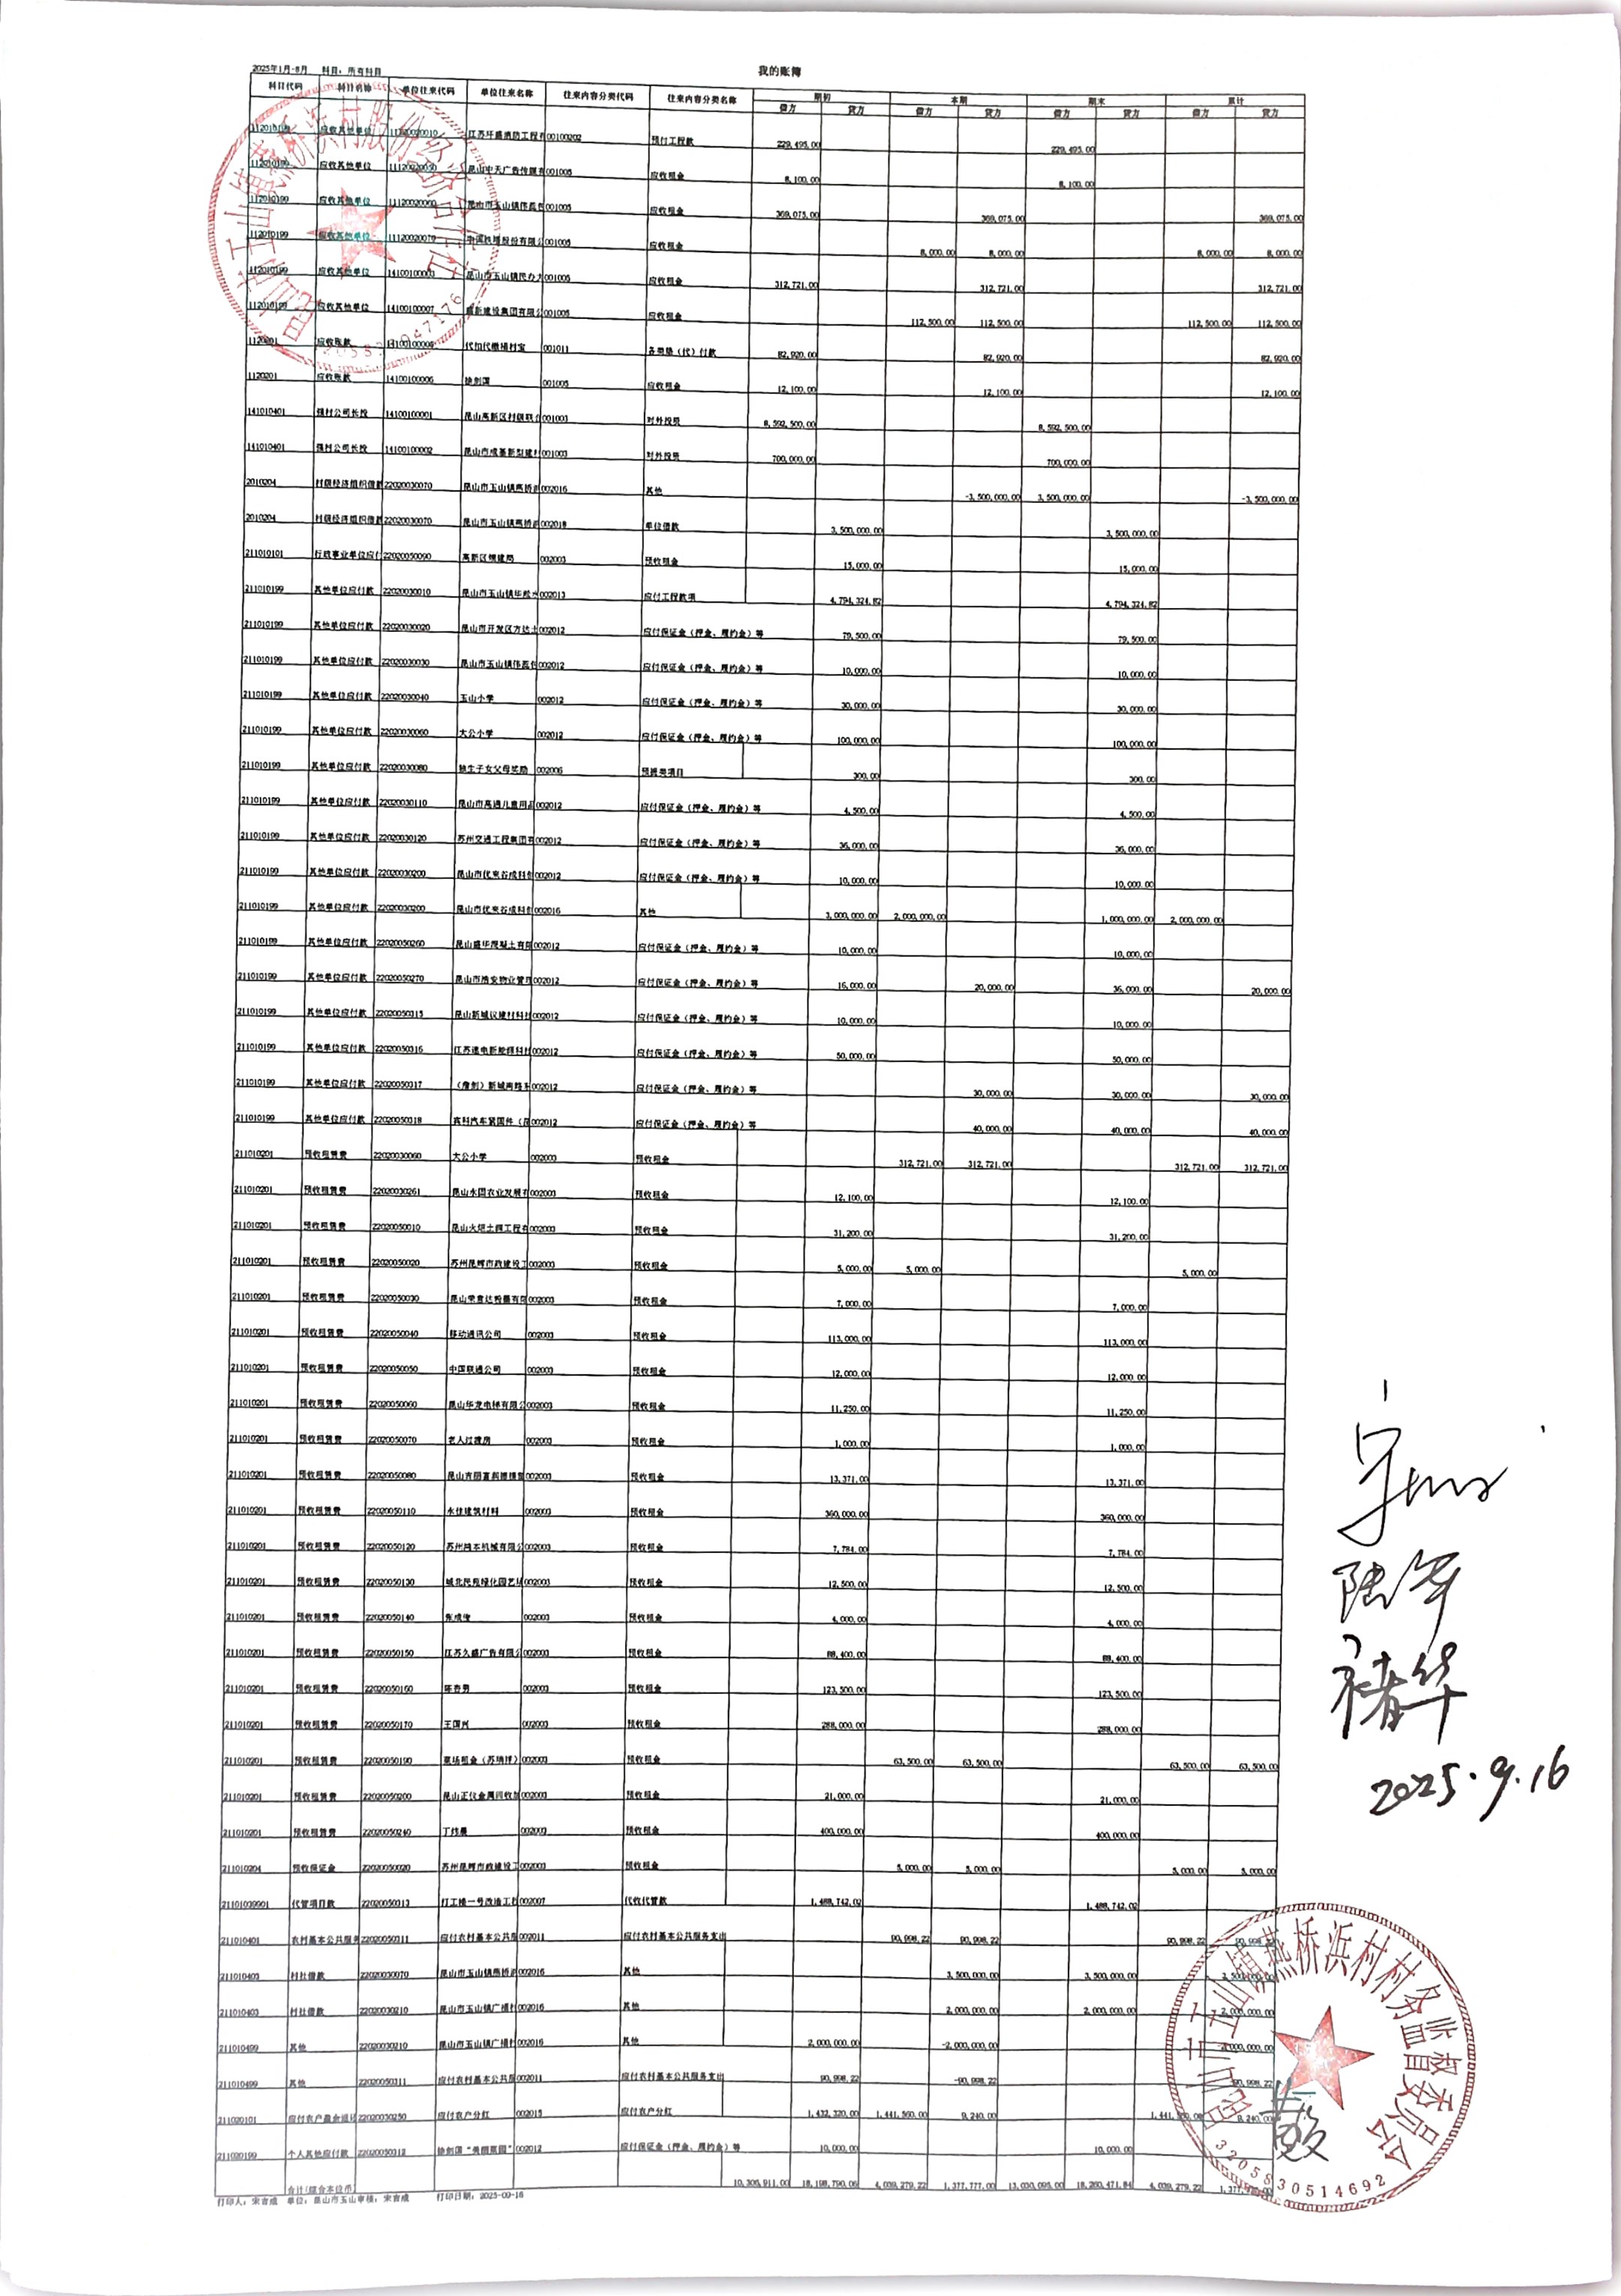 我的账簿
2025年1月-8月 科目：所有科目
科目代码 科目名称 单位往来代码 单位往来名称 往来内容分类代码 往来内容分类名称 期初 本期 期末 累计
借方 贷方 借方 贷方 借方 贷方 借方 贷方
112010199 应收其他单位 11120020010 00100202 预付工程款 229,495.00 229,495.00
112010199 应收其他单位 11120020050 001005 应收租金 8,100.00 8,100.00
112010199 应收其他单位 11120020060 001005 应收租金 369,075.00 369,075.00 369,075.00
112010199 应收其他单位 11120020070 中国铁塔股份有限公 001005 应收租金 8,000.00 8,000.00 8,000.00 8,000.00
112010199 应收其他单位 14100100003 昆山市玉山镇民办大 001005 应收租金 312,721.00 312,721.00 312,721.00
112010199 应收其他单位 14100100007 001005 应收租金 112,500.00 112,500.00 112,500.00 112,500.00
1120201 应收账款 001011 各类垫（代）付款 82,920.00 82,920.00 82,920.00
1120201 应收账款 14100100006 徐剑国 001005 应收租金 12,100.00 12,100.00 12,100.00
141010401 强村公司长投 14100100001 昆山高新区村级联合 001003 对外投资 8,592,500.00 8,592,500.00
141010401 强村公司长投 14100100002 001003 对外投资 700,000.00 700,000.00
2010204 村级经济组织借款 22020030070 昆山市玉山镇燕桥浜 002016 其他 -3,500,000.00 3,500,000.00 -3,500,000.00
2010204 村级经济组织借款 22020030070 昆山市玉山镇燕桥浜 002018 单位借款 3,500,000.00 3,500,000.00
211010101 行政事业单位应付 22020050090 高新区规建局 002003 预收租金 15,000.00 15,000.00
211010199 其他单位应付款 22020030010 002013 应付工程款项 4,794,324.82 4,794,324.82
211010199 其他单位应付款 22020030020 昆山市开发区方达土 002012 应付保证金（押金、履约金）等 79,500.00 79,500.00
211010199 其他单位应付款 22020030030 002012 应付保证金（押金、履约金）等 10,000.00 10,000.00
211010199 其他单位应付款 22020030040 玉山小学 002012 应付保证金（押金、履约金）等 30,000.00 30,000.00
211010199 其他单位应付款 22020030060 大公小学 002012 应付保证金（押金、履约金）等 100,000.00 100,000.00
211010199 其他单位应付款 22020030080 独生子女父母奖励 002006 预提类项目 300.00 300.00
211010199 其他单位应付款 22020030110 002012 应付保证金（押金、履约金）等 4,500.00 4,500.00
211010199 其他单位应付款 22020030120 苏州交通工程集团有 002012 应付保证金（押金、履约金）等 36,000.00 36,000.00
211010199 其他单位应付款 22020030200 昆山市优来谷成科创 002012 应付保证金（押金、履约金）等 10,000.00 10,000.00
211010199 其他单位应付款 22020030200 昆山市优来谷成科创 002016 其他 3,000,000.00 2,000,000.00 1,000,000.00 2,000,000.00
211010199 其他单位应付款 22020050260 昆山盛华混凝土有限 002012 应付保证金（押金、履约金）等 10,000.00 10,000.00
211010199 其他单位应付款 22020050270 002012 应付保证金（押金、履约金）等 16,000.00 20,000.00 36,000.00 20,000.00
211010199 其他单位应付款 22020050315 002012 应付保证金（押金、履约金）等 10,000.00 10,000.00
211010199 其他单位应付款 22020050316 002012 应付保证金（押金、履约金）等 50,000.00 50,000.00
211010199 其他单位应付款 22020050317 002012 应付保证金（押金、履约金）等 30,000.00 30,000.00 30,000.00
211010199 其他单位应付款 22020050318 宾科汽车紧固件（昆 002012 应付保证金（押金、履约金）等 40,000.00 40,000.00 40,000.00
211010201 预收租赁费 22020030060 大公小学 002003 预收租金 312,721.00 312,721.00 312,721.00 312,721.00
211010201 预收租赁费 22020030261 昆山永固农业发展有 002003 预收租金 12,100.00 12,100.00
211010201 预收租赁费 22020050010 002003 预收租金 31,200.00 31,200.00
211010201 预收租赁费 22020050020 苏州昆辉市政建设工 002003 预收租金 5,000.00 5,000.00 5,000.00
211010201 预收租赁费 22020050030 002003 预收租金 7,000.00 7,000.00
211010201 预收租赁费 22020050040 移动通讯公司 002003 预收租金 113,000.00 113,000.00
211010201 预收租赁费 22020050050 中国联通公司 002003 预收租金 12,000.00 12,000.00
211010201 预收租赁费 22020050060 昆山华龙电梯有限公 002003 预收租金 11,250.00 11,250.00
211010201 预收租赁费 22020050070 老人过渡房 002003 预收租金 1,000.00 1,000.00
211010201 预收租赁费 22020050080 002003 预收租金 13,371.00 13,371.00
211010201 预收租赁费 22020050110 永佳建筑材料 002003 预收租金 360,000.00 360,000.00
211010201 预收租赁费 22020050120 002003 预收租金 7,784.00 7,784.00
211010201 预收租赁费 22020050130 002003 预收租金 12,500.00 12,500.00
211010201 预收租赁费 22020050140 002003 预收租金 4,000.00 4,000.00
211010201 预收租赁费 22020050150 江苏久盛广告有限公 002003 预收租金 88,400.00 88,400.00
211010201 预收租赁费 22020050160 陈春男 002003 预收租金 123,500.00 123,500.00
211010201 预收租赁费 22020050170 王国兴 002003 预收租金 288,000.00 288,000.00
211010201 预收租赁费 22020050190 002003 预收租金 63,500.00 63,500.00 63,500.00 63,500.00
211010201 预收租赁费 22020050200 昆山正仪金属回收加 002003 预收租金 21,000.00 21,000.00
211010201 预收租赁费 22020050240 002003 预收租金 400,000.00 400,000.00
211010204 预收保证金 22020050020 苏州昆辉市政建设工 002003 预收租金 5,000.00 5,000.00 5,000.00 5,000.00
21101039901 代管项目款 22020050313 打工楼一号改造工程 002007 代收代管款 1,488,742.02 1,488,742.02
211010401 农村基本公共服务 22020050311 应付农村基本公共服 002011 应付农村基本公共服务支出 90,998.22 90,998.22 90,998.22 90,998.22
211010403 村社借款 22020030070 昆山市玉山镇燕桥浜 002016 其他 3,500,000.00 3,500,000.00 3,500,000.00
211010403 村社借款 22020030210 昆山市玉山镇广福村 002016 其他 2,000,000.00 2,000,000.00 2,000,000.00
211010499 其他 22020030210 昆山市玉山镇广福村 002016 其他 2,000,000.00 -2,000,000.00 -2,000,000.00
211010499 其他 22020050311 应付农村基本公共服 002011 应付农村基本公共服务支出 90,998.22 -90,998.22 -90,998.22
211020101 22020030250 应付农户分红 002015 应付农户分红 1,432,320.00 1,441,560.00 9,240.00 1,441,560.00 9,240.00
211020199 个人其他应付款 22020050312 002012 应付保证金（押金、履约金）等 10,000.00 10,000.00
合计(综合本位币 10,306,911.00 18,198,790.06 4,039,279.22 1,377,777.00 13,030,095.00 18,260,471.84 4,039,279.22
打印人：宋吉成 单位：昆山市玉山 审核：宋吉成 打印日期：2025-09-16
陆军
褚华
2025.9.16
昆山市玉山镇燕桥浜村村务监督委员会
3205830514692